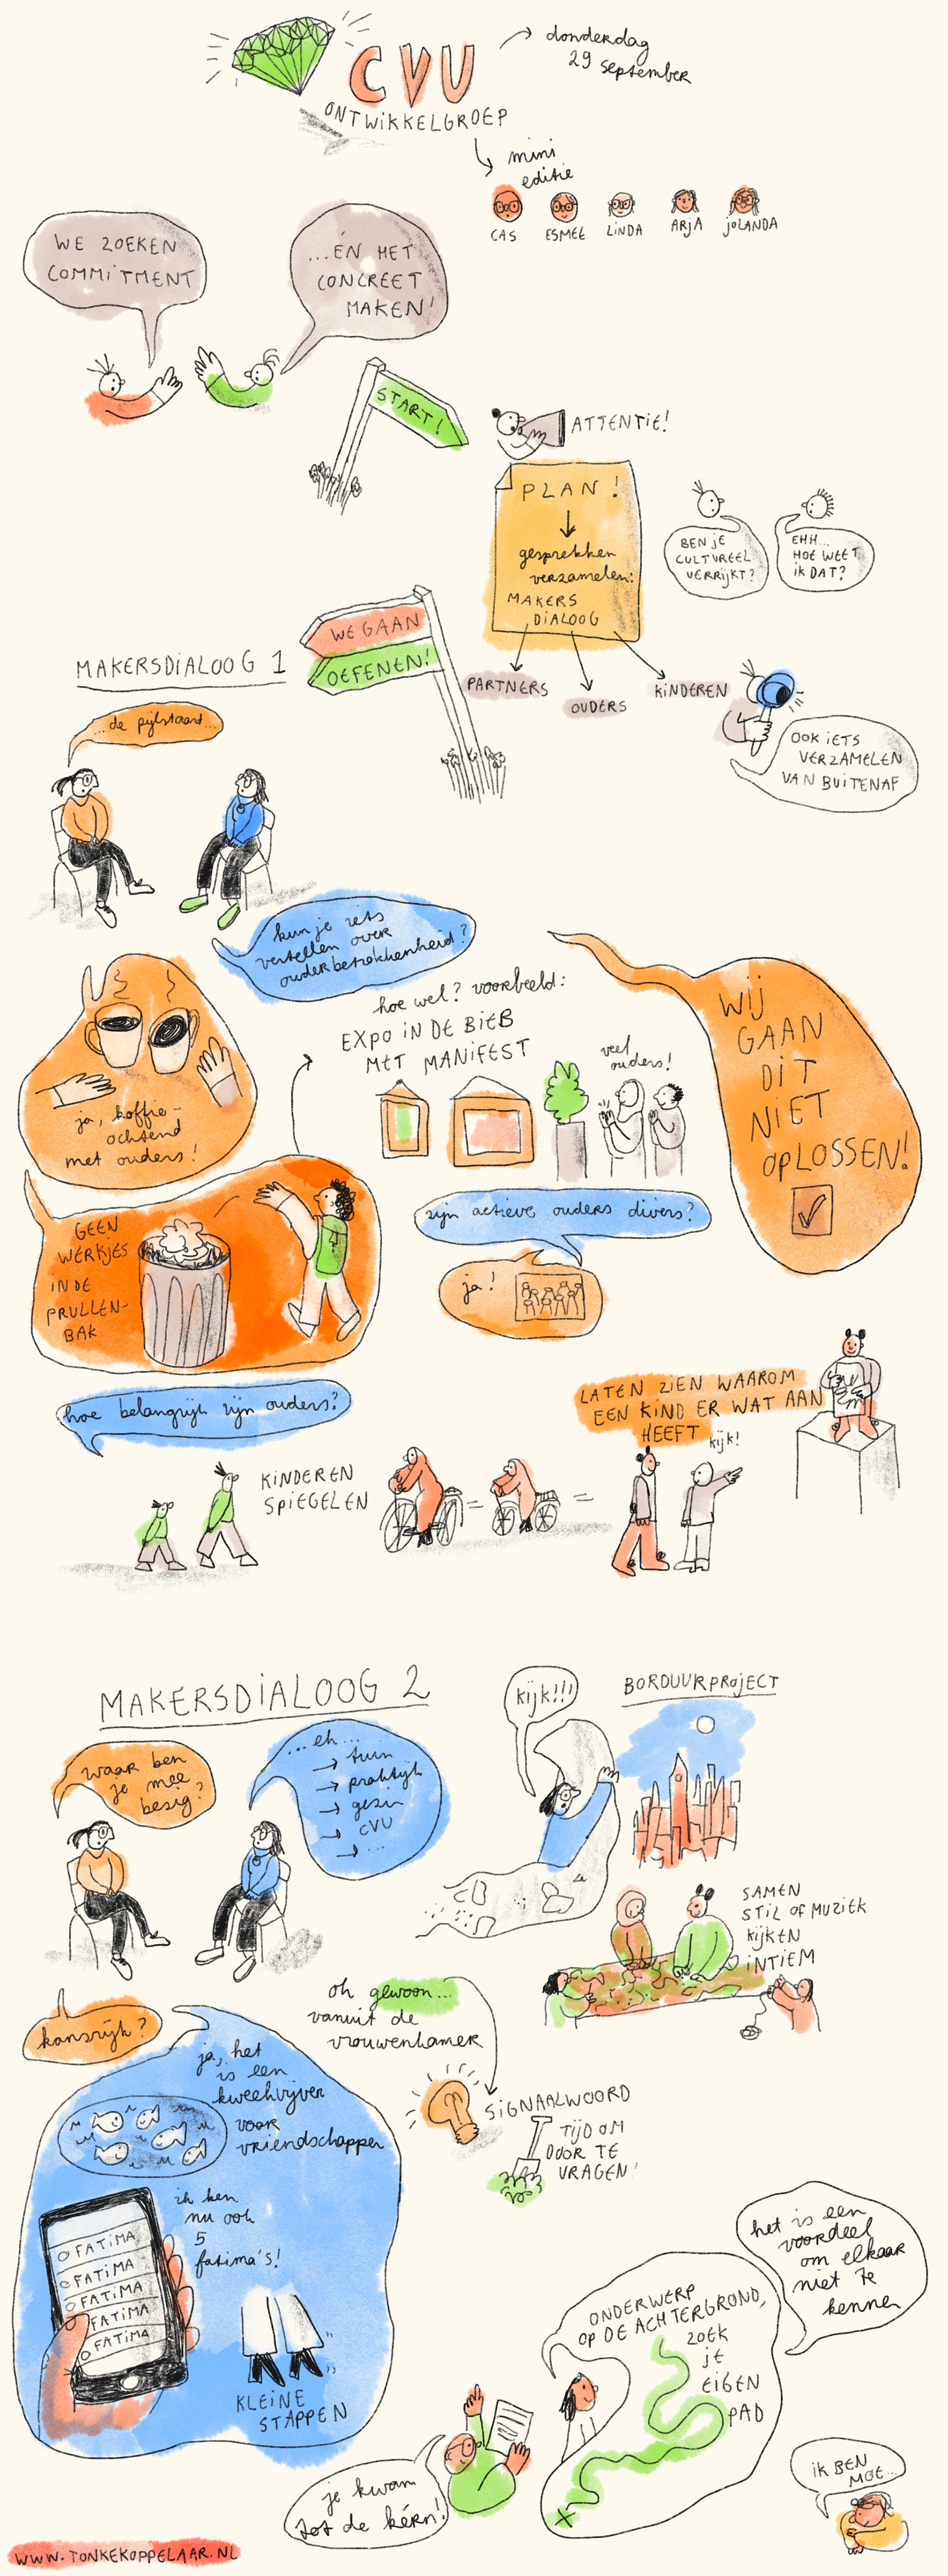 CVU
donderdag
29 september
ONTWIKKELGROEP
mini
editie
CAS
ESMEE
LINDA
ARJA
JOLANDA
WE ZOEKEN
COMMITMENT
...ÉN HET
CONCREET
MAKEN!
START!
ATTENTIE!
PLAN!
gesprekken
verzamelen:
MAKERS
DIALOOG
BEN JE
CULTUREEL
VERRIJKT?
EHH...
HOE WEET
IK DAT?
WE GAAN
OEFENEN!
PARTNERS
OUDERS
KINDEREN
OOK IETS
VERZAMELEN
VAN BUITENAF
MAKERSDIALOOG 1
...de pijlstaart...
kun je iets
vertellen over
ouderbetrokkenheid?
ja, koffie-
ochtend
met ouders!
hoe wel? voorbeeld:
EXPO IN DE BIEB
MET MANIFEST
veel
ouders!
WIJ
GAAN
DIT
NIET
OPLOSSEN!
GEEN
WERKJES
IN DE
PRULLEN-
BAK
zijn actieve ouders divers?
ja!
hoe belangrijk zijn ouders?
KINDEREN
SPIEGELEN
=
=
LATEN ZIEN WAAROM
EEN KIND ER WAT AAN
HEEFT
kijk!
MAKERSDIALOOG 2
waar ben
je mee
bezig?
...eh...
→ tuin
→ praktijk
→ gezin
→ CVU
→ ...
kijk!!!
BORDUURPROJECT
SAMEN
STIL OF MUZIEK
KIJKEN
INTIEM
kansrijk?
ja, het
is een
kweekvijver
voor
vriendschappen
ik ken
nu ook
5
fatima's!
FATIMA
FATIMA
FATIMA
FATIMA
FATIMA
KLEINE
STAPPEN
oh gewoon...
vanuit de
vrouwenkamer
SIGNAALWOORD
TIJD OM
DOOR TE
VRAGEN!
het is een
voordeel
om elkaar
niet te
kennen
ONDERWERP
OP DE ACHTERGROND,
ZOEK
JE
EIGEN
PAD
je kwam
tot de kérn!
IK BEN
MOE...
WWW.TONKEKOPPELAAR.NL